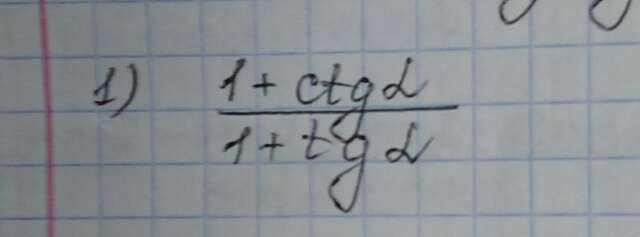 1) 1 + ctg α
1 + tg α